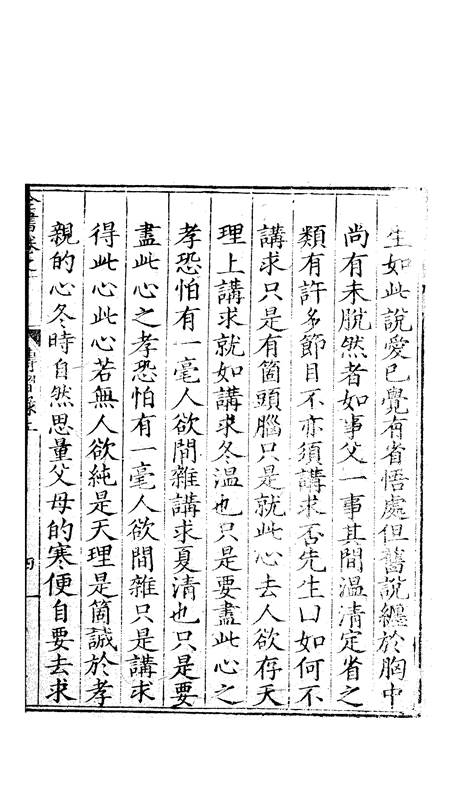 生如此說愛已覺有省悟處但舊說纏於胸中
尚有未脫然者如事父一事其間溫凊定省之
類有許多節目不亦須講求否先生曰如何不
講求只是有箇頭腦只是就此心去人欲存天
理上講求就如講求冬溫也只是要盡此心之
孝恐怕有一毫人欲間雜講求夏凊也只是要
盡此心之孝恐怕有一毫人欲間雜只是講求
得此心此心若無人欲純是天理是箇誠於孝
親的心冬時自然思量父母的寒便自要去求
全書卷之一